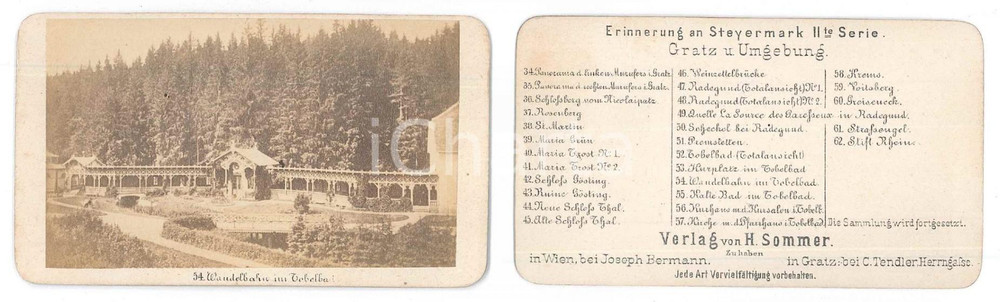 54. Wandelbahn im Tobelba
iCharta
Erinnerung an Steyermark IIte Serie.
Gratz u. Umgebung.
34. Panorama d. linken Murufers i. Gratz.
35. Panorama d. rechten Murufers i. Gratz.
36. Schlossberg vom Nicolaipatz
37. Rosenberg
38. St. Martin
39. Maria Grün
40. Maria Trost Nr. 1.
41. Maria Trost No. 2.
42. Schloss Gösting.
43. Ruine Gösting.
44. Neue Schloss Thal.
45. Alte Schloss Thal.
46. Weinzettelbrücke
47. Radegund (Totalansicht) No. 1.
48. Radegund (Totalansicht) No. 2.
49. Quelle La Source des in Radegund.
50. bei Radegund.
51. Premstetten
52. Tobelbad (Totalansicht)
53. Kurplatz im Tobelbad
54. Wandelbahn im Tobelbad.
55. Kalte Bad im Tobelbad.
56. Kurhaus m. d. Kursalon i. Tobelb.
57. Kirche m. d. Pfarrhaus i. Tobelbad
58. Krems.
59. Voitsberg.
60. Groiseneck.
61. Strassengel.
62. Stift Rhein.
Die Sammlung wird fortgesetzt.
Verlag von H. Sommer.
Zu haben
in Wien, bei Joseph Bermann. in Gratz: bei C. Tendler Herrngasse.
Jede Art Vervielfältigung vorbehalten.